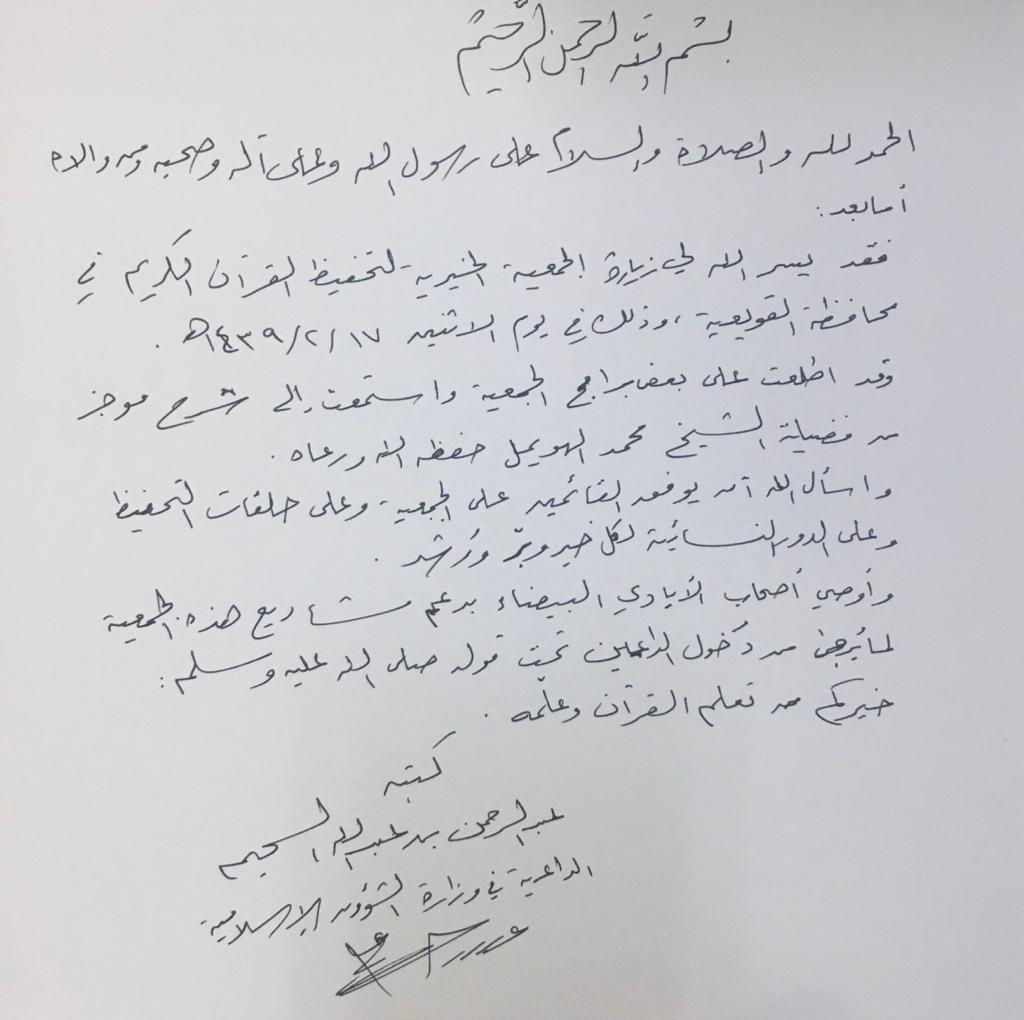 بسم الله الرحمن الرحيم
الحمد لله والصلاة والسلام على رسول الله وعلى آله وصحبه ومن والاه
أما بعد :
فقد يسر الله لي زيارة الجمعية الخيرية لتحفيظ القرآن الكريم في
محافظة القويعية ، وذلك في يوم الاثنين ١٤٣٩/٢/١٧هـ .
وقد اطلعت على بعض برامج الجمعية واستمعت إلى شرح موجز
من فضيلة الشيخ محمد الهويمل حفظه الله ورعاه .
واسأل الله أن يوفق القائمين على الجمعية وعلى حلقات التحفيظ
وعلى الدور النسائية لكل خير وبرّ ورُشد .
وأوصي أصحاب الأيادي البيضاء بدعم مشاريع هذه الجمعية
لما يُرجى من دخول الداعمين تحت قوله صلى الله عليه وسلم :
خيركم من تعلم القرآن وعلّمه .
كتبه
عبدالرحمن بن عبدالله السحيم
الداعية في وزارة الشؤون الإسلامية